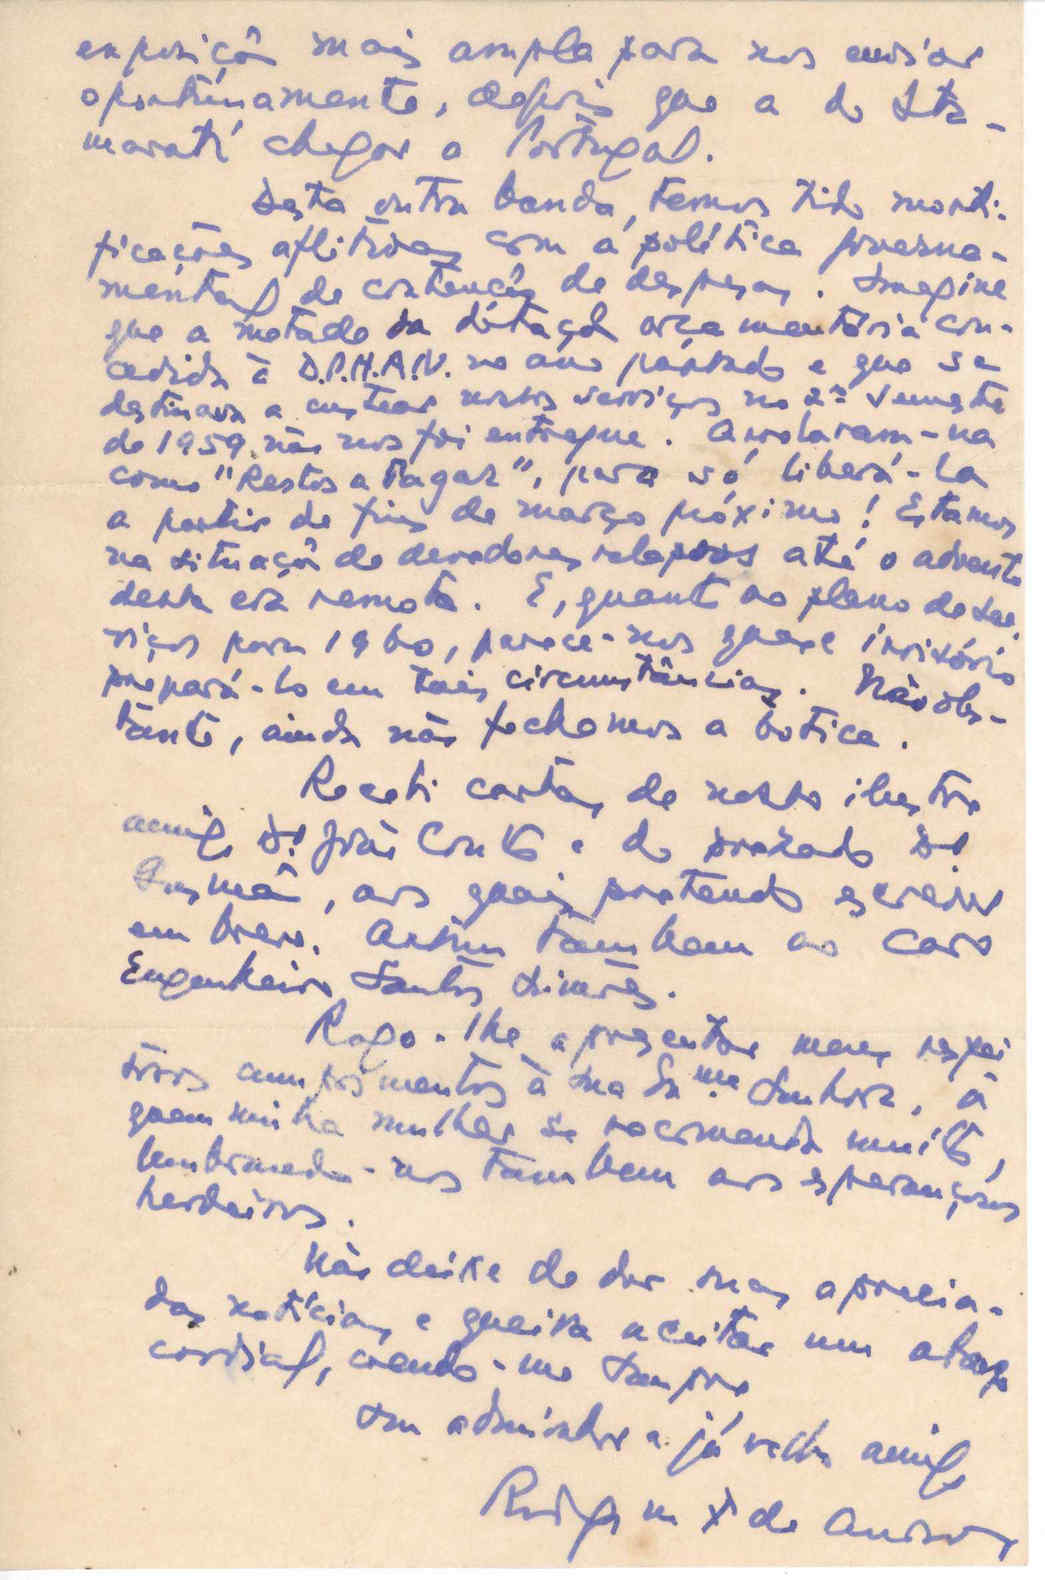 exposição mais ampla para nos enviar
oportunamente, depois que a do Ita-
maratí chegar a Portugal.
Desta outra banda, temos tido morti-
ficações aflitivas com a política governa-
mental de contenção de despesas. Imagine
que a metade da dotação orçamentária con-
cedida à D.P.H.A.N. no ano passado e que se
destinava a custear nossos serviços no 2º semestre
de 1959 não nos foi entregue. Arrolaram-na
como "Restos a Pagar", para só liberá-la
a partir de fins de março próximo! Estamos
na situação de devedores relapsos até o advento
desta era remota. E, quanto ao plano de ser-
viços para 1960, parece-nos quase irrisório
prepará-lo em tais circunstâncias. Não obs-
tante, ainda não fechamos a botica.
Recebi cartas de nosso ilustre
amigo Dr. João Couto e do prezado Dr.
Gusmão, aos quais pretendo escrever
em breve. Assim tambem ao caro
Engenheiro Santos Simões.
Rogo-lhe apresentar meus respei
tosos cumprimentos à sua Exma Senhora, à
quem minha mulher se recomenda muito,
lembrando-nos tambem aos esperançosos
herdeiros.
Não deixe de dar suas aprecia-
das notícias e queira aceitar um abraço
cordial, crendo-me sempre
seu admirador e já velho amigo
Rodrigo M F de Andrade